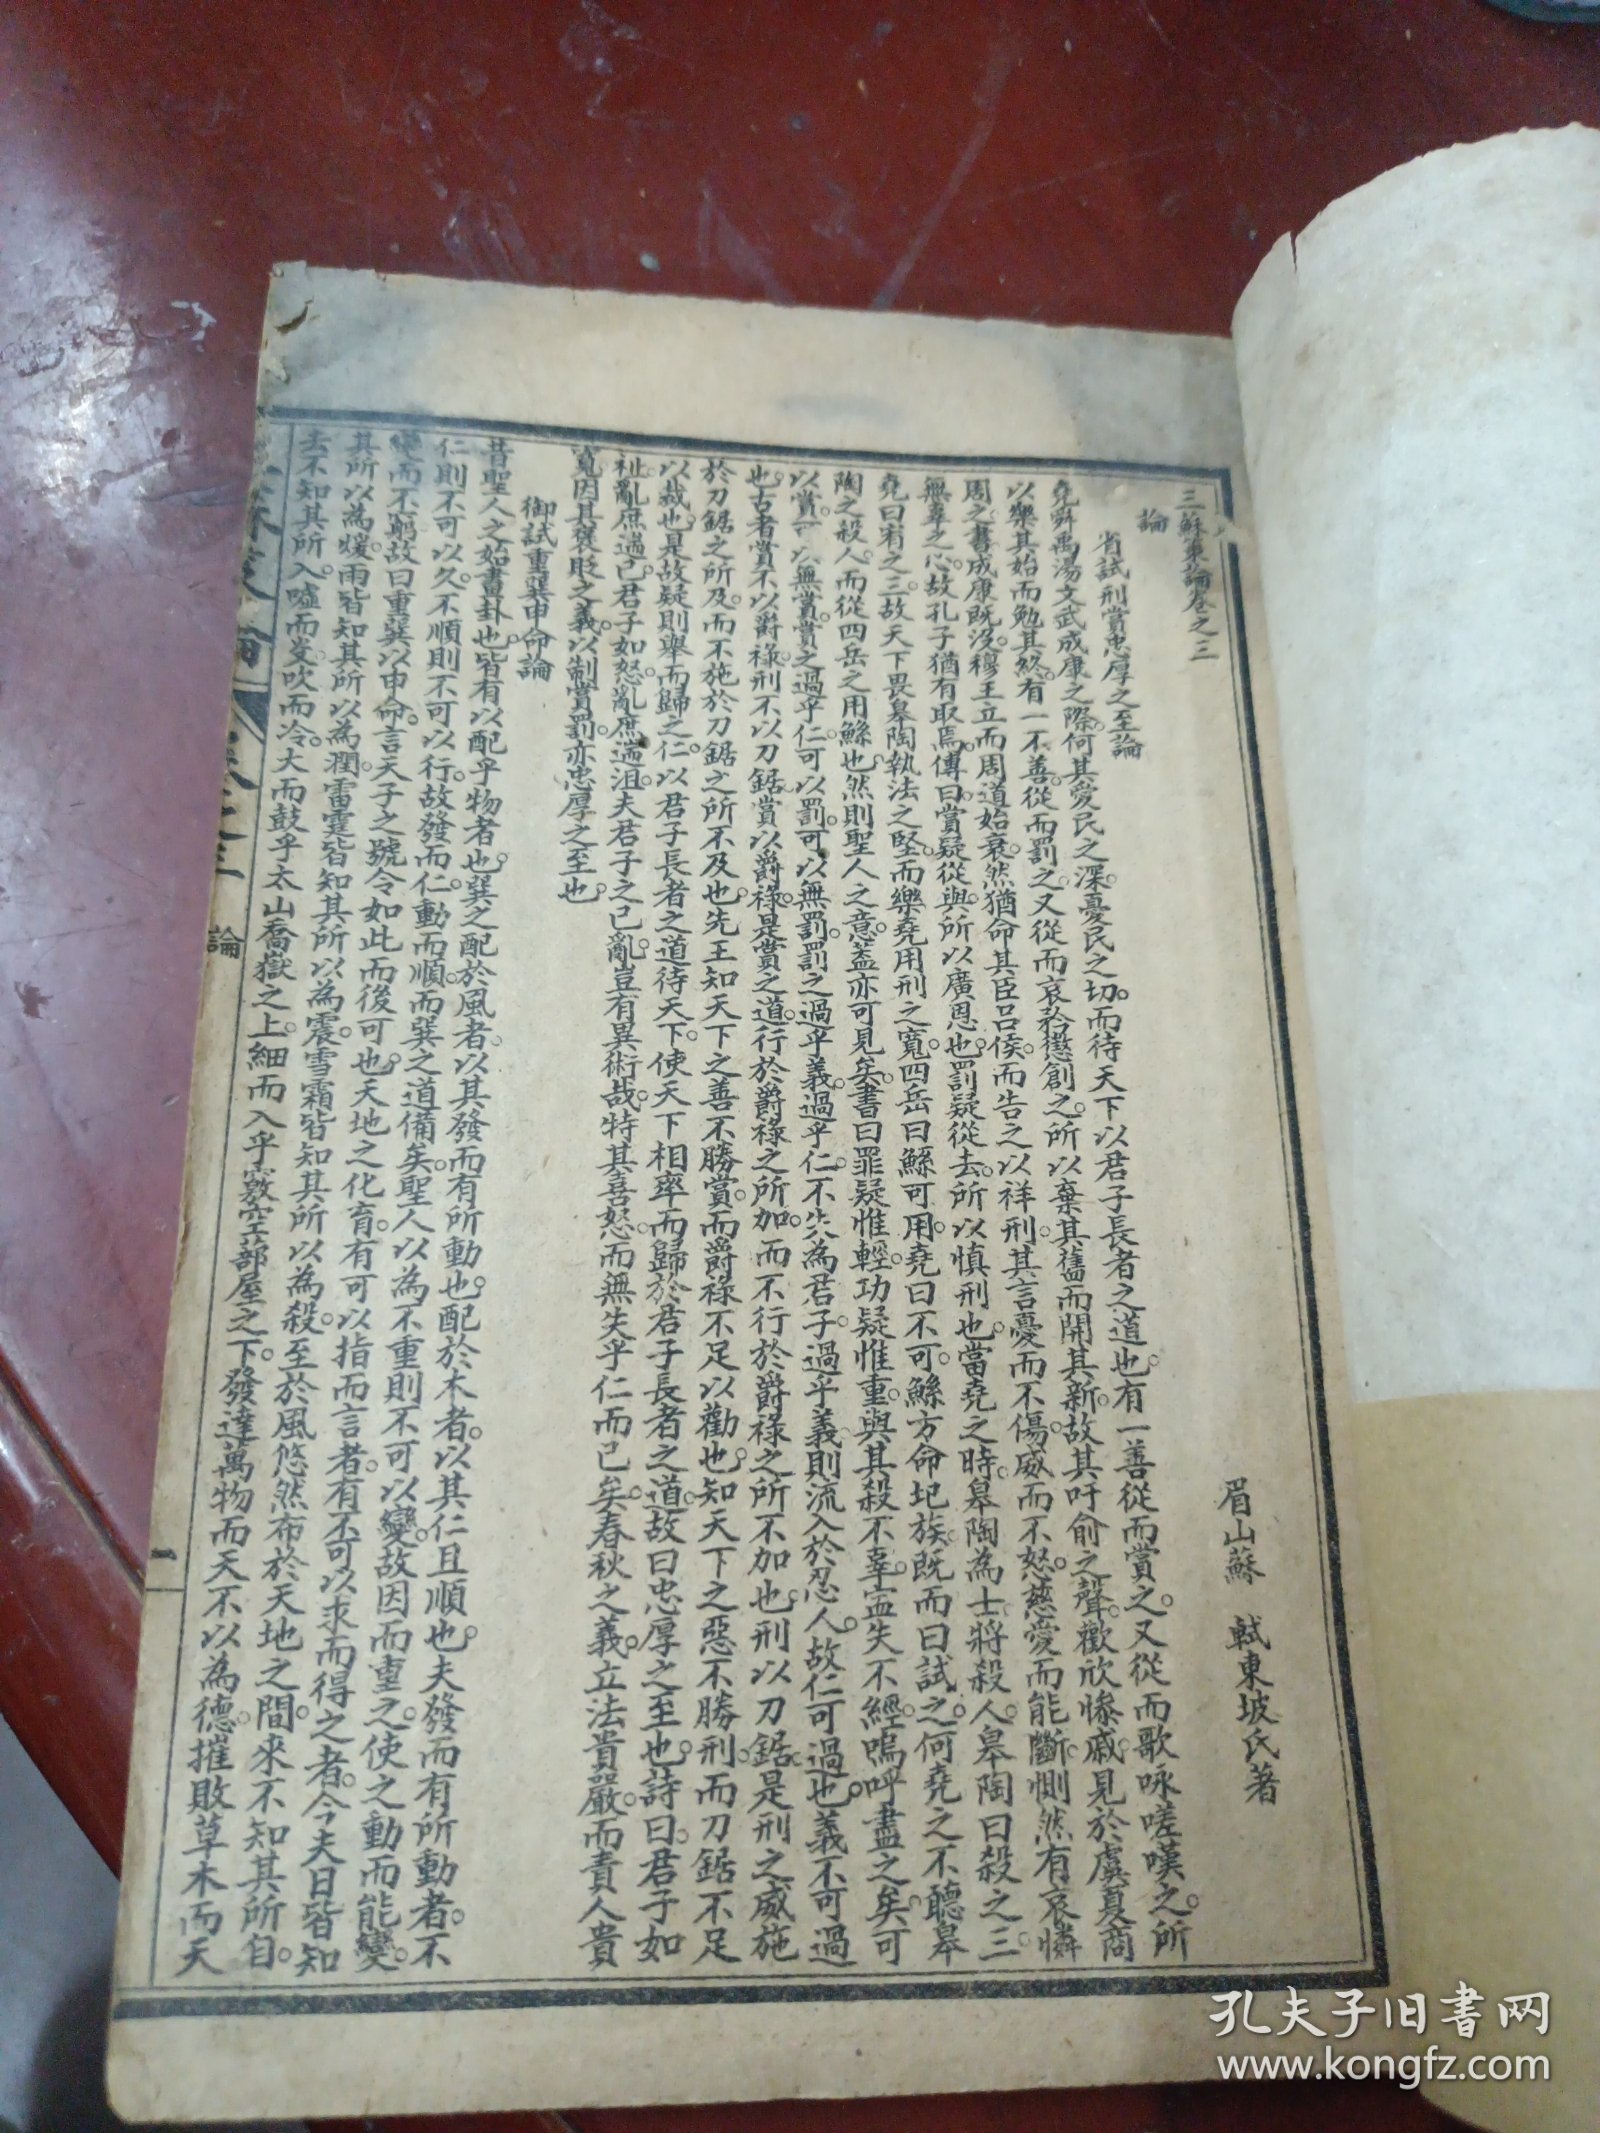 三蘇策論卷之三
眉山蘇 軾東坡氏著
論
省試刑賞忠厚之至論
堯舜禹湯文武成康之際。何其愛民之深。憂民之切。而待天下以君子長者之道也。有一善從而賞之。又從而歌咏嗟嘆之。所
以樂其始而勉其終。有一不善。從而罰之。又從而哀矜懲創之。所以棄其舊而開其新。故其吁俞之聲。歡欣慘戚。見於虞夏商
周之書。成康既沒。穆王立而周道始衰。然猶命其臣呂侯。而告之以祥刑。其言憂而不傷。威而不怒。慈愛而能斷。惻然有哀憐
無辜之心。故孔子猶有取焉。傳曰。賞疑從與。所以廣恩也。罰疑從去。所以慎刑也。當堯之時。皋陶為士。將殺人。皋陶曰殺之三。
堯曰宥之三。故天下畏皋陶執法之堅。而樂堯用刑之寬。四岳曰鯀可用。堯曰不可。鯀方命圯族。既而曰試之。何堯之不聽皋
陶之殺人。而從四岳之用鯀也。然則聖人之意。蓋亦可見矣。書曰罪疑惟輕。功疑惟重。與其殺不辜。寧失不經。嗚呼盡之矣。可
以賞。可以無賞。賞之過乎仁。可以罰。可以無罰。罰之過乎義。過乎仁。不失為君子。過乎義。則流入於忍人。故仁可過也。義不可過
也。古者賞不以爵祿。刑不以刀鋸。賞以爵祿。是賞之道。行於爵祿之所加。而不行於爵祿之所不加也。刑以刀鋸。是刑之威施
於刀鋸之所及。而不施於刀鋸之所不及也。先王知天下之善不勝賞。而爵祿不足以勸也。知天下之惡不勝刑。而刀鋸不足
以裁也。是故疑則舉而歸之仁。以君子長者之道待天下。使天下相率而歸於君子長者之道。故曰忠厚之至也。詩曰。君子如
祉。亂庶遄已。君子如怒。亂庶遄沮。夫君子之已亂。豈有異術哉。特其喜怒。而無失乎仁而已矣。春秋之義。立法貴嚴。而責人貴
寬。因其褒貶之義。以制賞罰。亦忠厚之至也。
御試重巽申命論
昔聖人之始畫卦也。皆有以配乎物者也。巽之配於風者。以其發而有所動也。配於木者。以其仁且順也。夫發而有所動者。不
仁則不可以久。不順則不可以行。故發而仁。動而順。而巽之道備矣。聖人以為不重則不可以變。故因而重之。使之動而能變。
變而不窮。故曰重巽以申命。言天子之號令如此而後可也。天地之化育。有可以指而言者。有不可以求而得之者。今夫日皆知
其所以為煖。雨皆知其所以為潤。雷霆皆知其所以為震。雪霜皆知其所以為殺。至於風悠然布於天地之間。來不知其所自。
去不知其所入。噓而炎。吹而冷。大而鼓乎太山喬嶽之上。細而入乎竅空蔀屋之下。發達萬物而天不以為德。摧敗草木而天
卷之三 論 一
孔夫子旧书网
www.kongfz.com